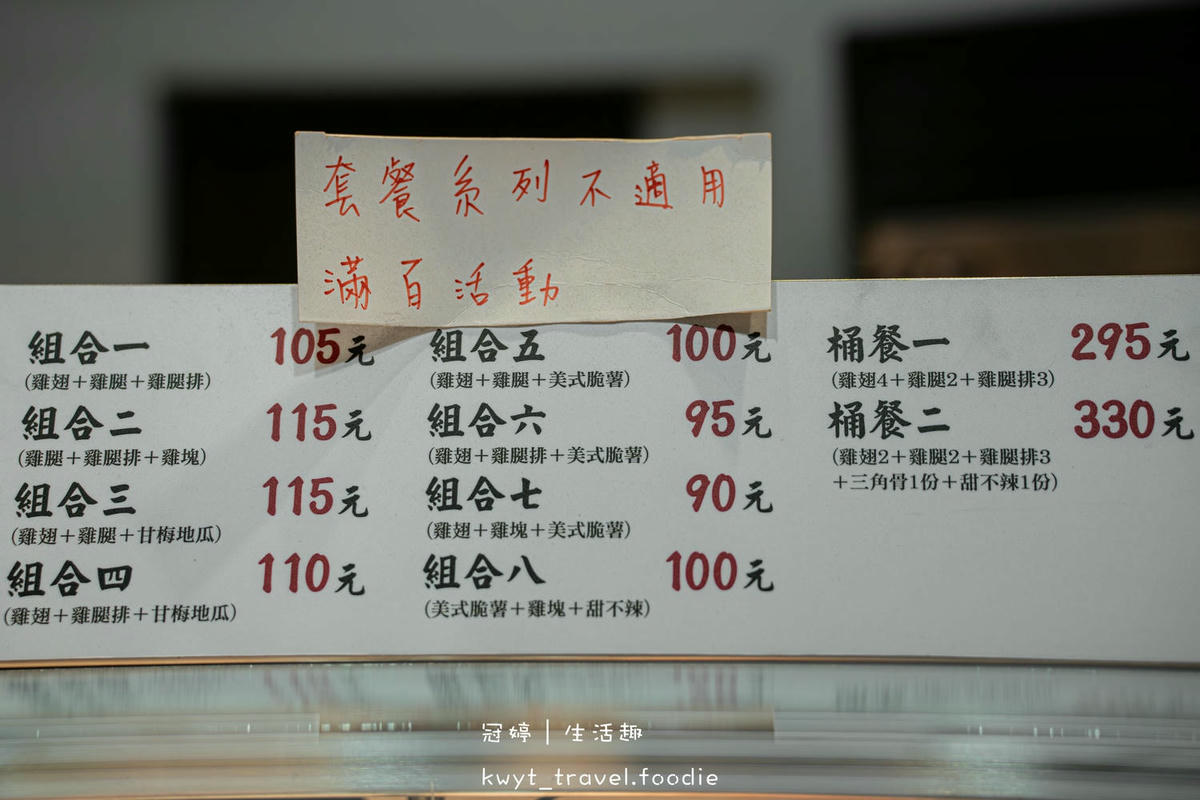 套餐系列不適用
滿百活動
組合一 105元
(雞翅＋雞腿＋雞腿排)
組合二 115元
(雞腿＋雞腿排＋雞塊)
組合三 115元
(雞翅＋雞腿＋甘梅地瓜)
組合四 110元
(雞翅＋雞腿排＋甘梅地瓜)
組合五 100元
(雞翅＋雞腿＋美式脆薯)
組合六 95元
(雞翅＋雞腿排＋美式脆薯)
組合七 90元
(雞翅＋雞塊＋美式脆薯)
組合八 100元
(美式脆薯＋雞塊＋甜不辣)
桶餐一 295元
(雞翅4＋雞腿2＋雞腿排3)
桶餐二 330元
(雞翅2＋雞腿2＋雞腿排3
＋三角骨1份＋甜不辣1份)
冠婷｜生活趣
kwyt_travel.foodie